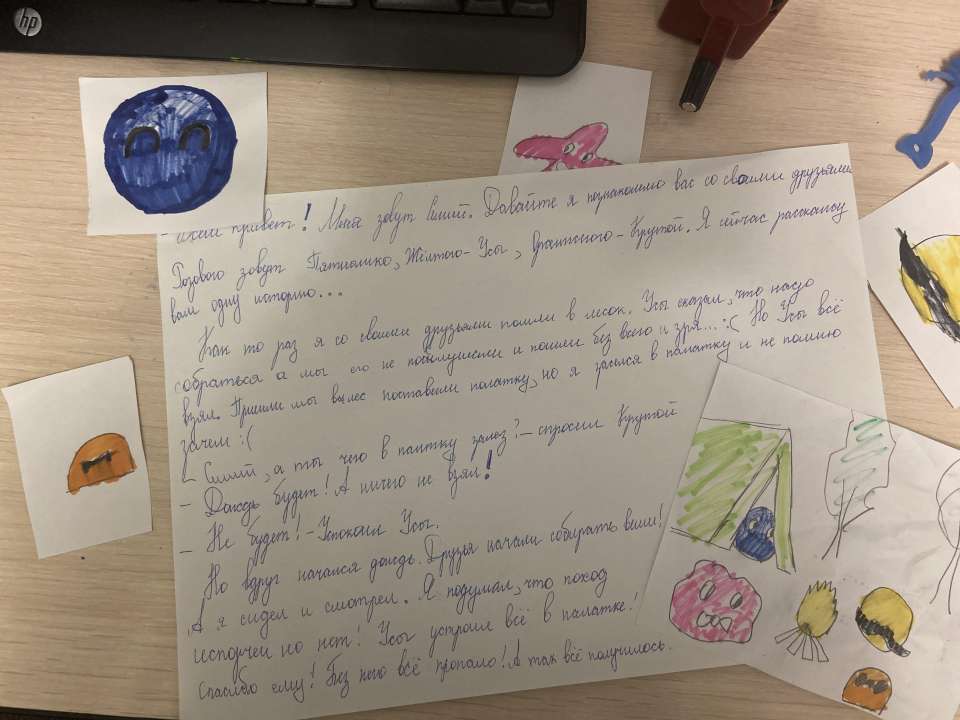 hp
Всем привет! Меня зовут Синий. Давайте я познакомлю вас со своими друзьями
Розового зовут Пятиголико, Жёлтого-Усы, Оранжевого-Крутой. Я сейчас расскажу
вам одну историю...
Как то раз я со своими друзьями пошли в лесок. Усы сказал, что надо
собраться а мы его не послушали и пошли без всего и зря...:( Но Усы всё
взял. Пришли мы в лес поставили палатку, но я уселся в палатку и не помню
зачем :(
- Синий, а ты чего в палтку залез? - спросил Крутой
- Дождь будет! А ничего не взял!
- Не будет! - Успокоил Усы.
Но вдруг начался дождь. Друзья начали собирать вещи!
А я сидел и смотрел. Я подумал, что поход
испорчен но нет! Усы устроил всё в палатке!
Спасибо ему! Без него всё пропало! А так всё получилось.